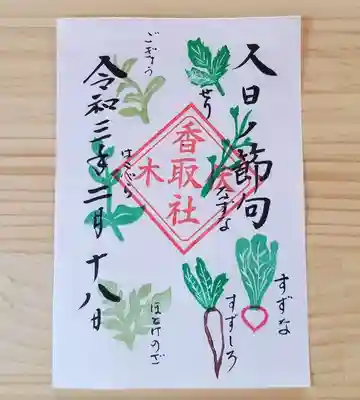 人日ノ節句
せり
なずな
すずな
すずしろ
香取社
木
ごぎょう
はこべら
ほとけのざ
令和三年二月十八日